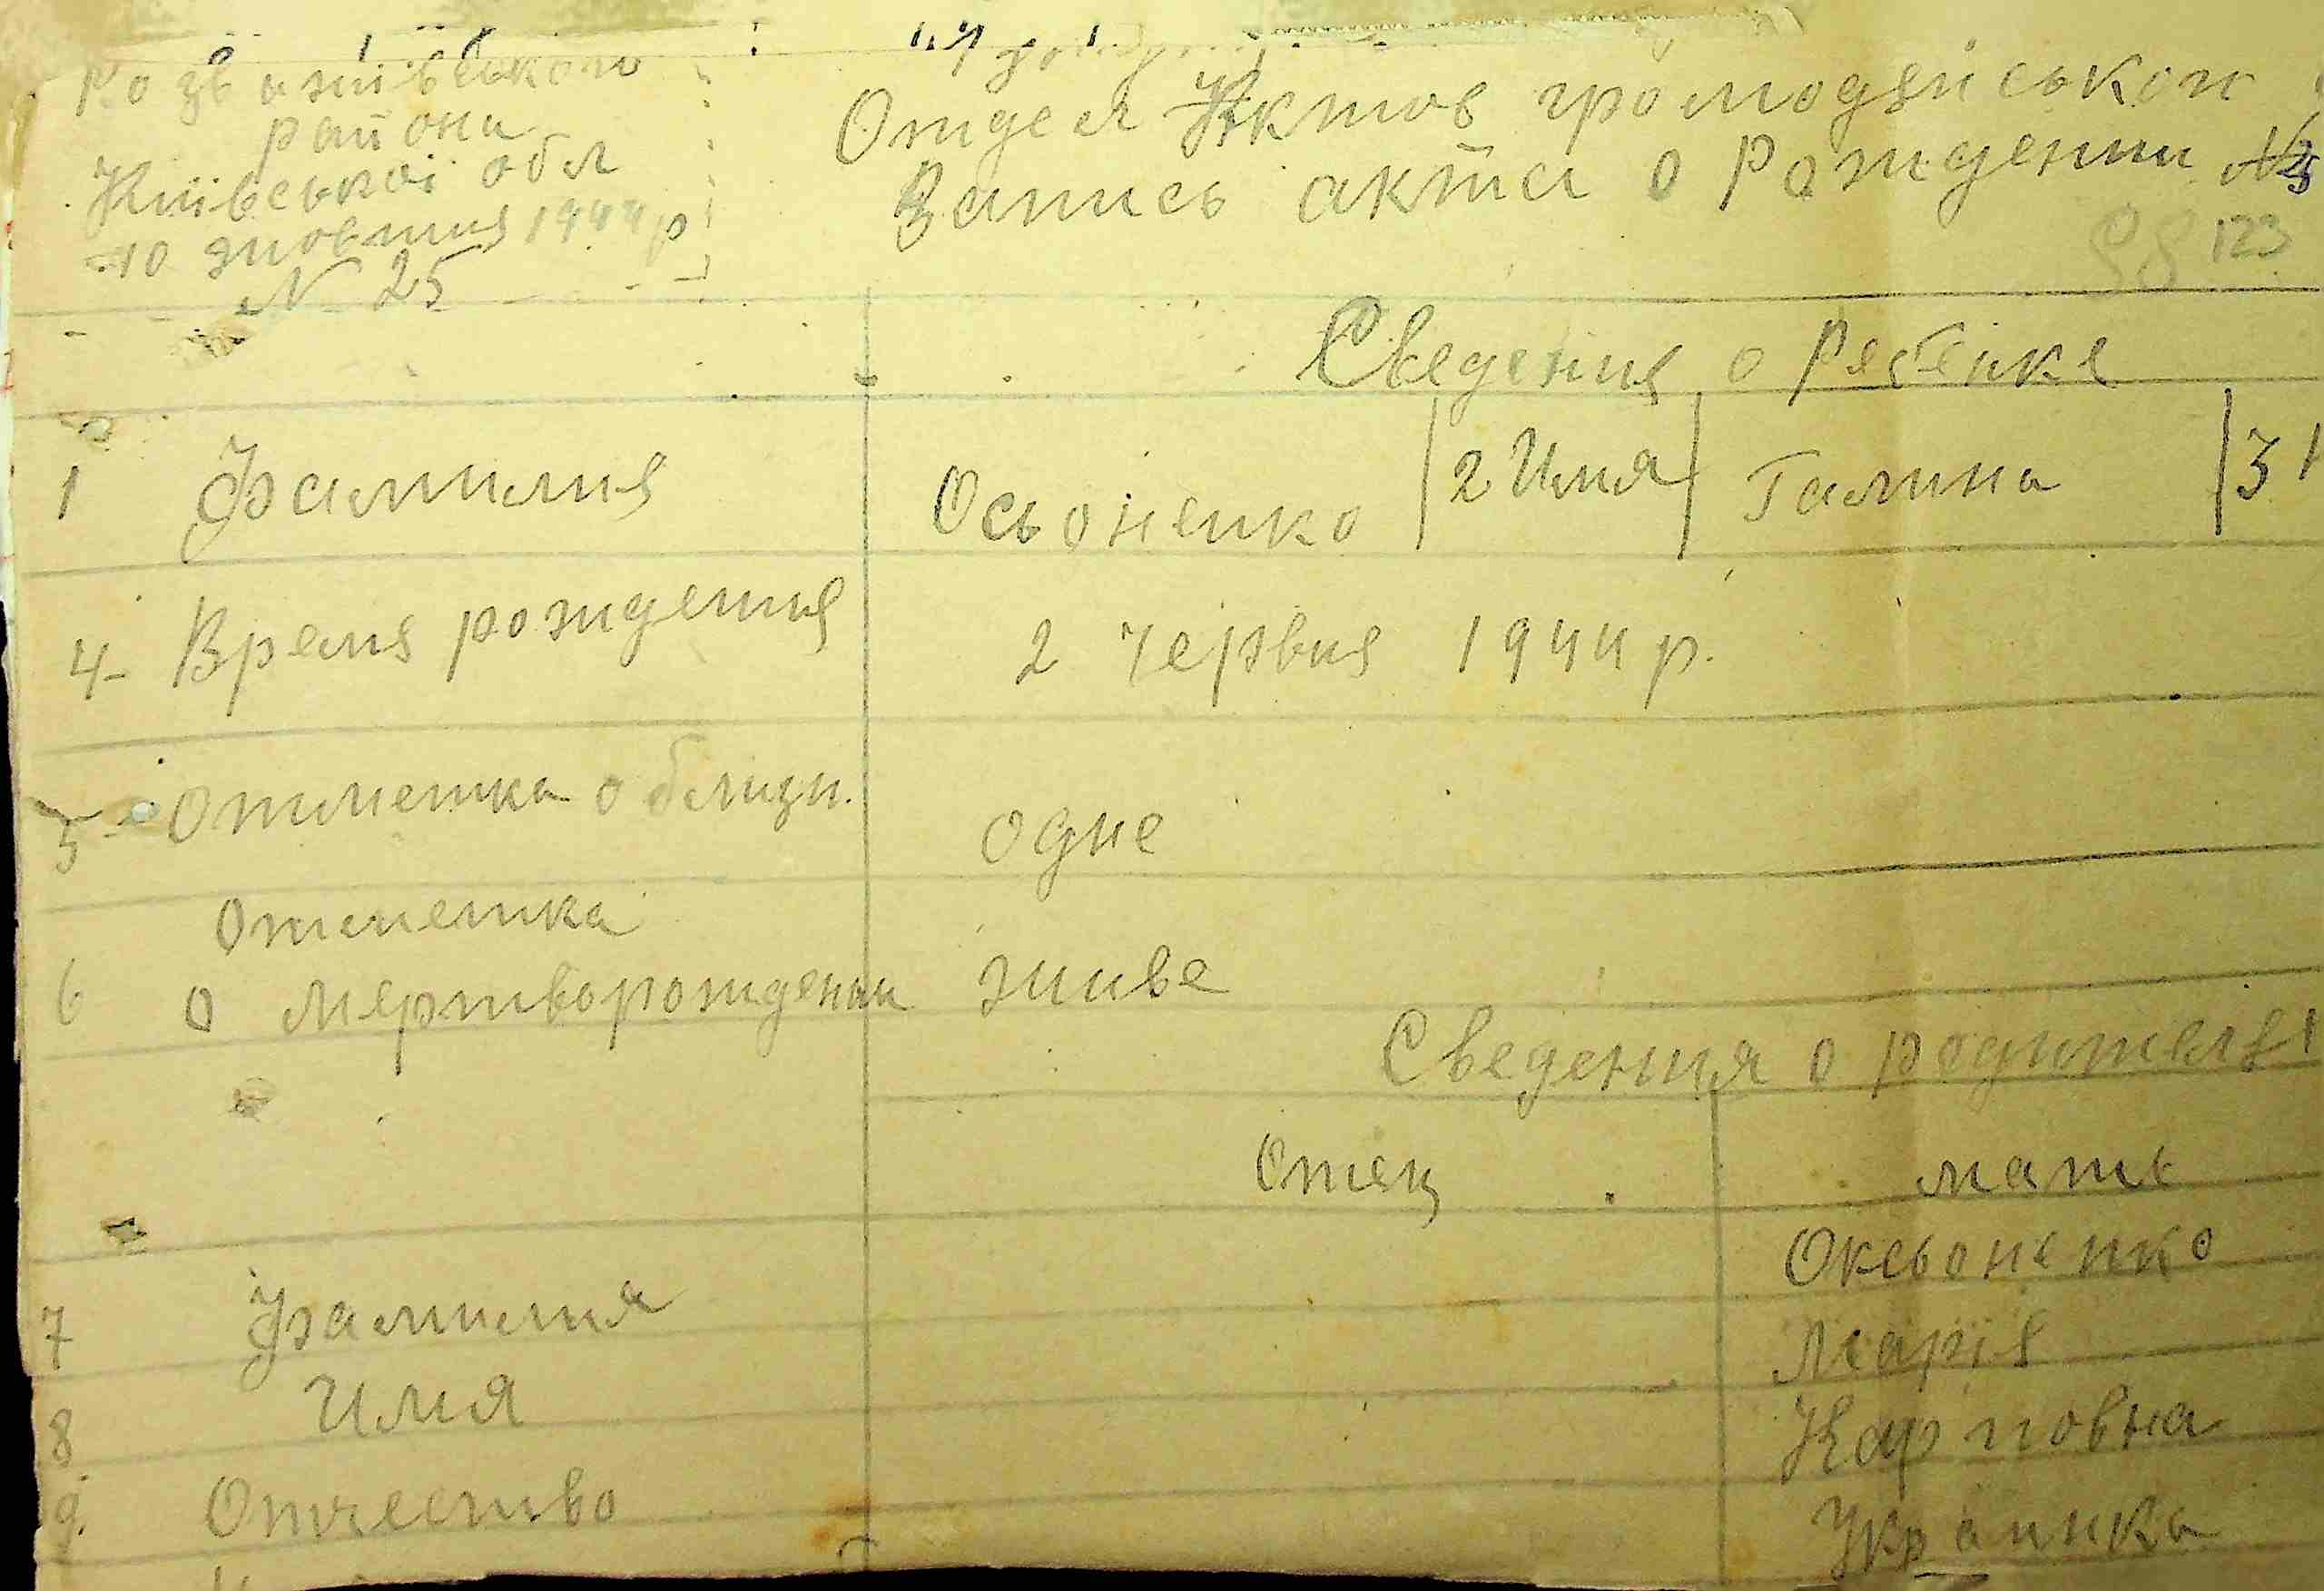 Розважівського
района
Київської обл
10 жовтня 1944 р
N 25
Отдел Актов громодянськом
Запись акта о Рождении №
123
Сведения о Ребенке
1 Фамилия Осьоненко 2 Имя Галина 3
4 Время рождения 2 червня 1944 р.
5 Отметка о близн. одне
Отметка
6 о мертворождении живе
Сведения о родителях
Отец мать
7 Фамилия Оксьоненко
8 Имя Марія
9. Отчество Карповна
Украинка